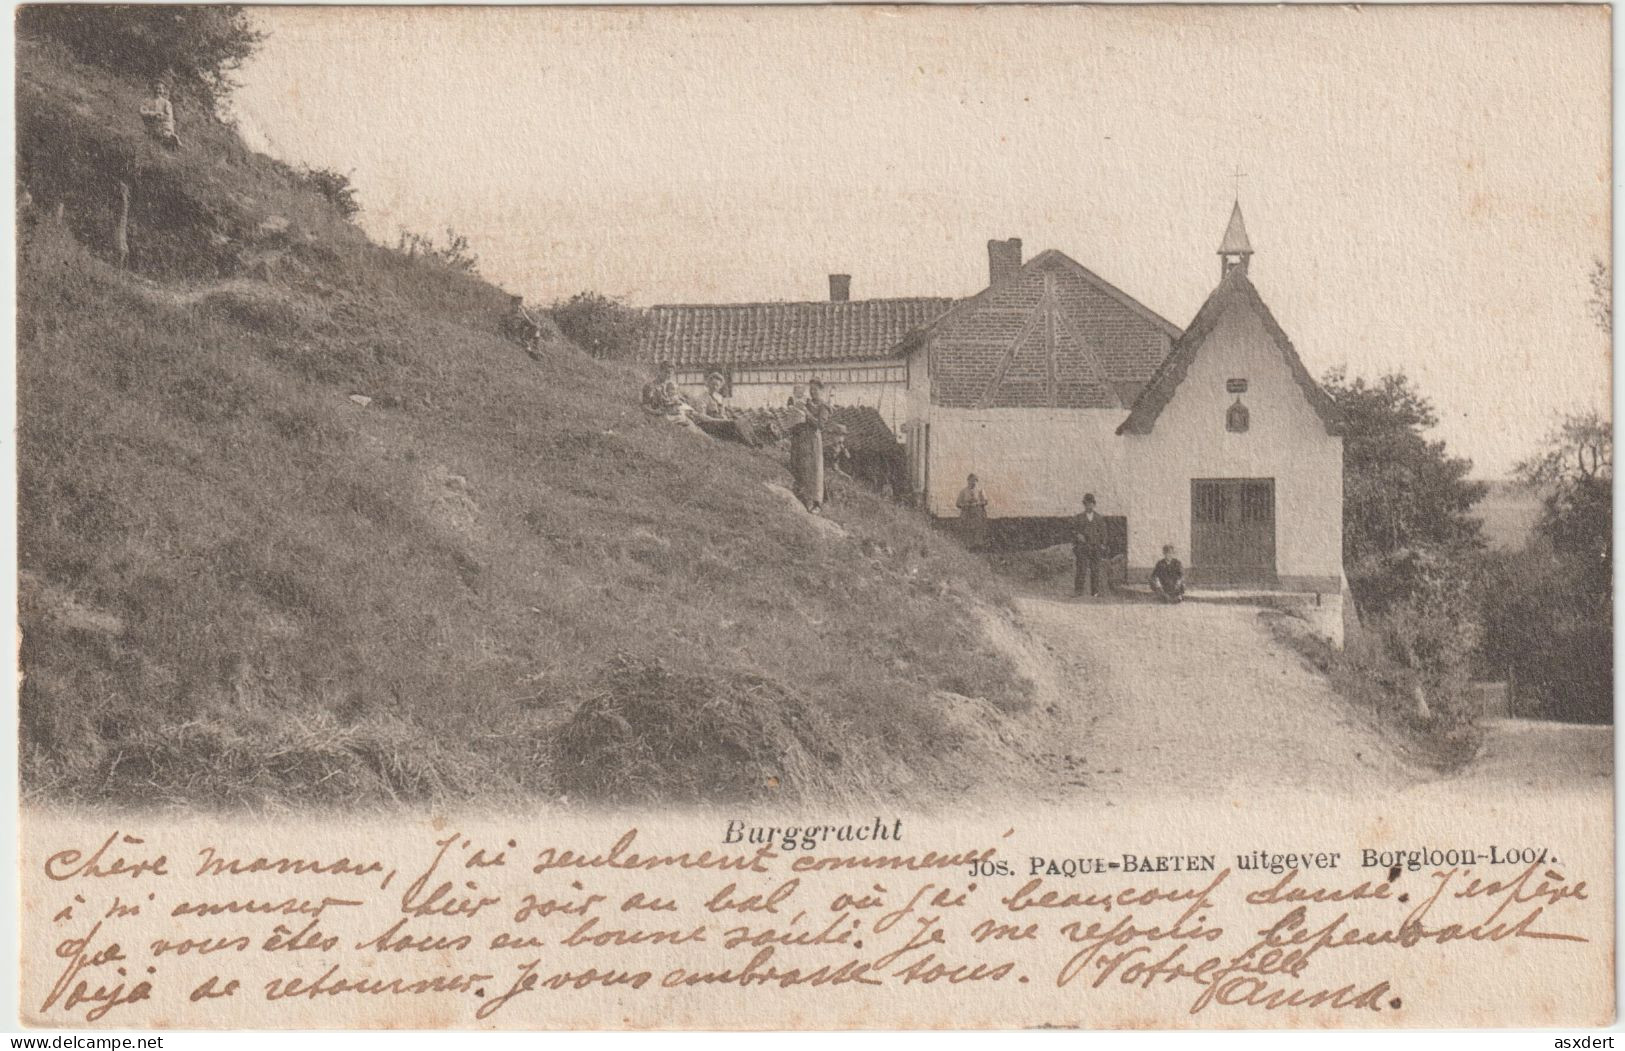 Burggracht
Jos. PAQUE-BAETEN uitgever Borgloon-Looz.
Chère Maman, J'ai seulement commencé
à m'amuser hier soir au bal, où j'ai beaucoup dansé. J'espère
que vous êtes tous en bonne santé. Je me rejouis Cependant
déjà de retourner. Je vous embrasse tous. Votre fille
Anna.
delcampe.net
asxdert